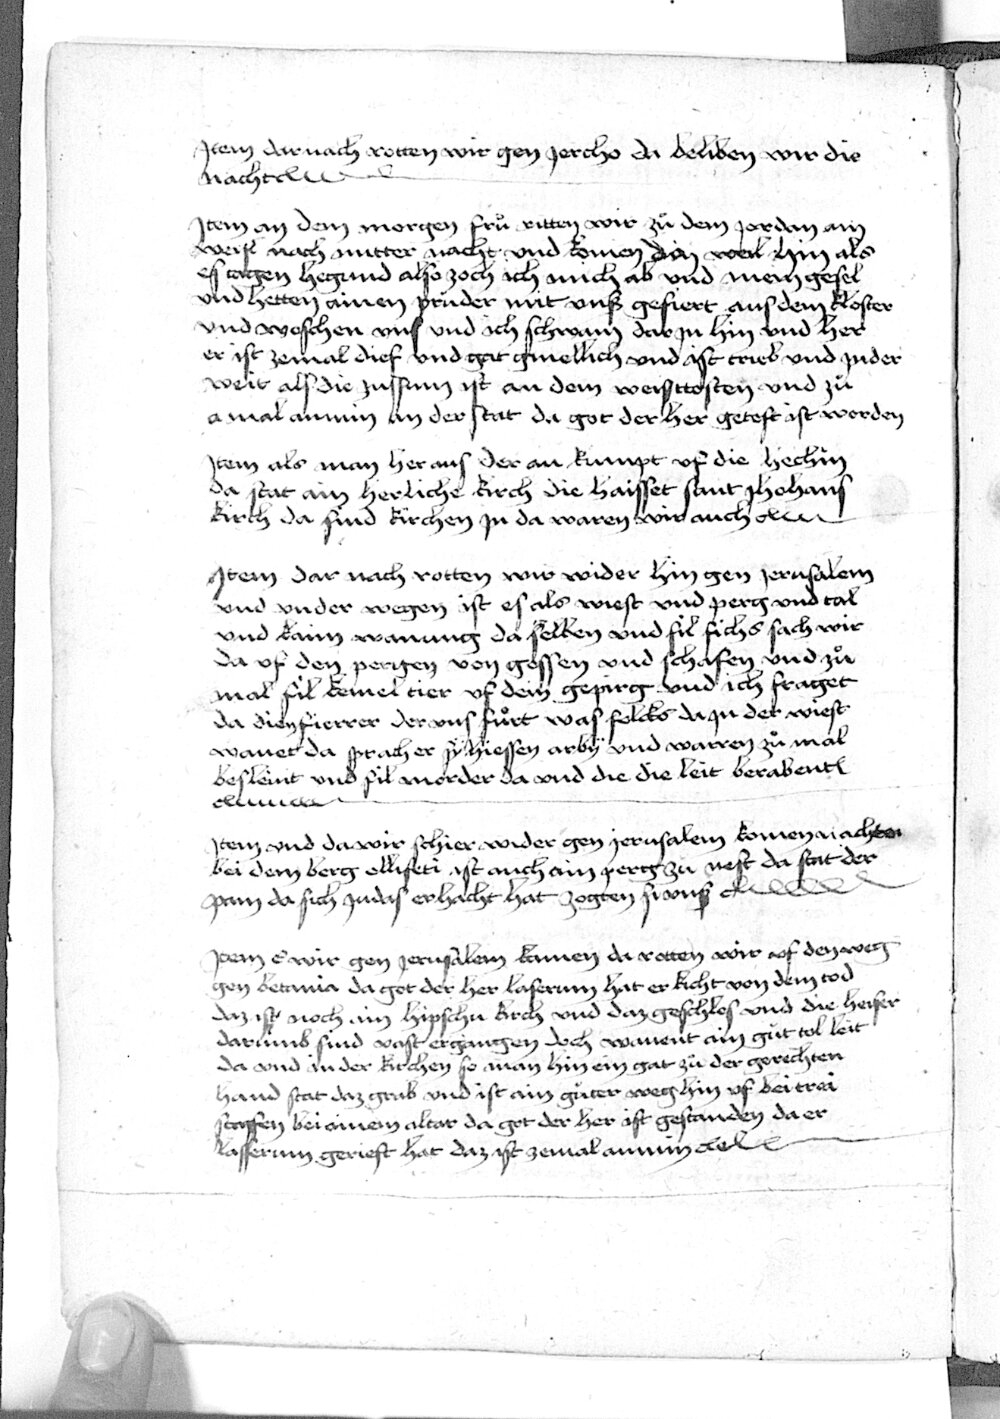 Item dar nach rotten wir gen Jercho da beliben wir die
nacht
Item an dem morgen frů ritten wir zů dem Jordan ain
weil nach mitter nacht und komen ain weil hin als
es tagen begund also zoch ich mich ab und mein gesel
und hetten ainen pruder mit unß gefiert aus dem kloster
und woschen uns und ich schwam dar Jn hin und her
er ist zemal dief und gat gmellich und ist trieb und Jn der
weit als die ist an dem weisttosten und zů
a mal an der stat da got der her getoft ist worden
Item als man her aus der au kumpt uf die hechin
da stat ain herliche kirch die haisset sant Jhohans
kirch da sind kirchen Jn da waren wir auch
Item dar nach rotten wir wider hin gen Jerusalem
und under wegen ist es als wiest und perg und tal
und kain wanung da selben und fil fichs sach wir
da uf den pergen von gessen und schafen und zů
mal fil kemel tier uf dem gepirg und ich fraget
da den fierrer der uns fůrt was folcks da Jn der wiest
wanet da sprach er sÿ hiessen arbÿ und warren zů mal
besleint und fil morder da und die die leit berabent
Item und da wir schier wider gen Jerusalem komen nachten
bei dem berg ollifeti ist auch ain perg zu nest da stat der
pam da sich Judas erhacht hat zogten si unß
Item e wir gen Jerusalem kamen da rotten wir uf den weg
gen betania da got der her laserum hat er kicht von dem tod
daz ist noch ain hipschu kirch und daz geschlos und die heiser
darumb sind vast ergangen doch wanent ain gůt tol leit
da und in der kirchen so man hin ein gat zů der gerechten
hand stat daz grab und ist ain gůter weg hin uf bei trei
staffen bei ainem altar da got der her ist gestanden da er
lasserum gerieft hat daz ist zemal